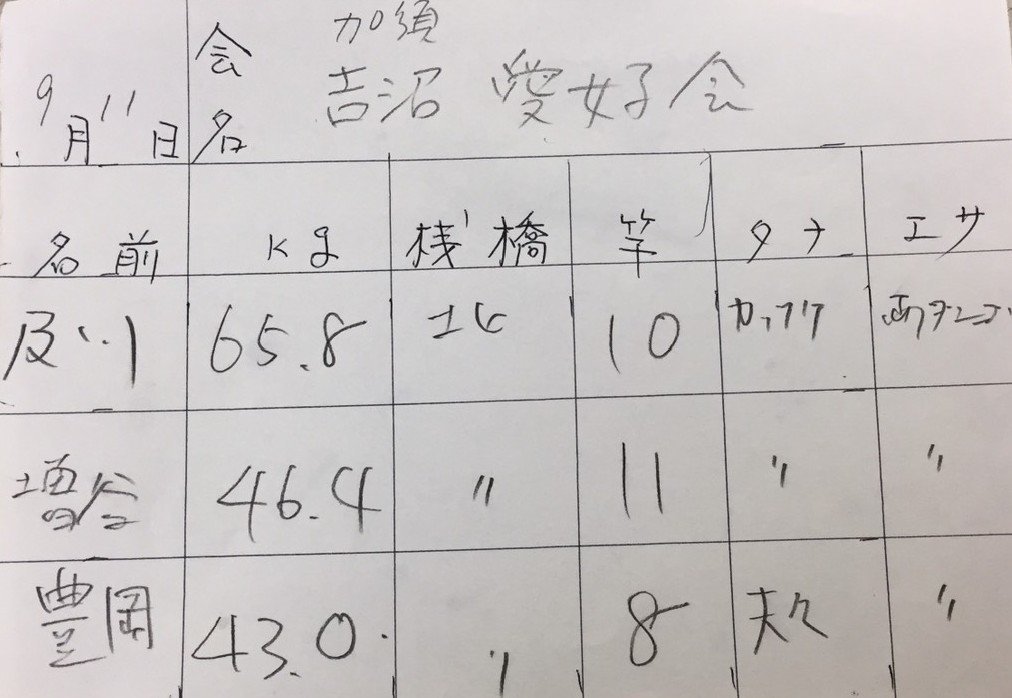 9月11日 会名 加須
吉沼 愛好会
名前 kg 桟橋 竿 タナ エサ
及川 65.8 北 10 カッツケ 両ダンゴ
増谷 46.4 〃 11 〃 〃
豊岡 43.0 〃 8 〃